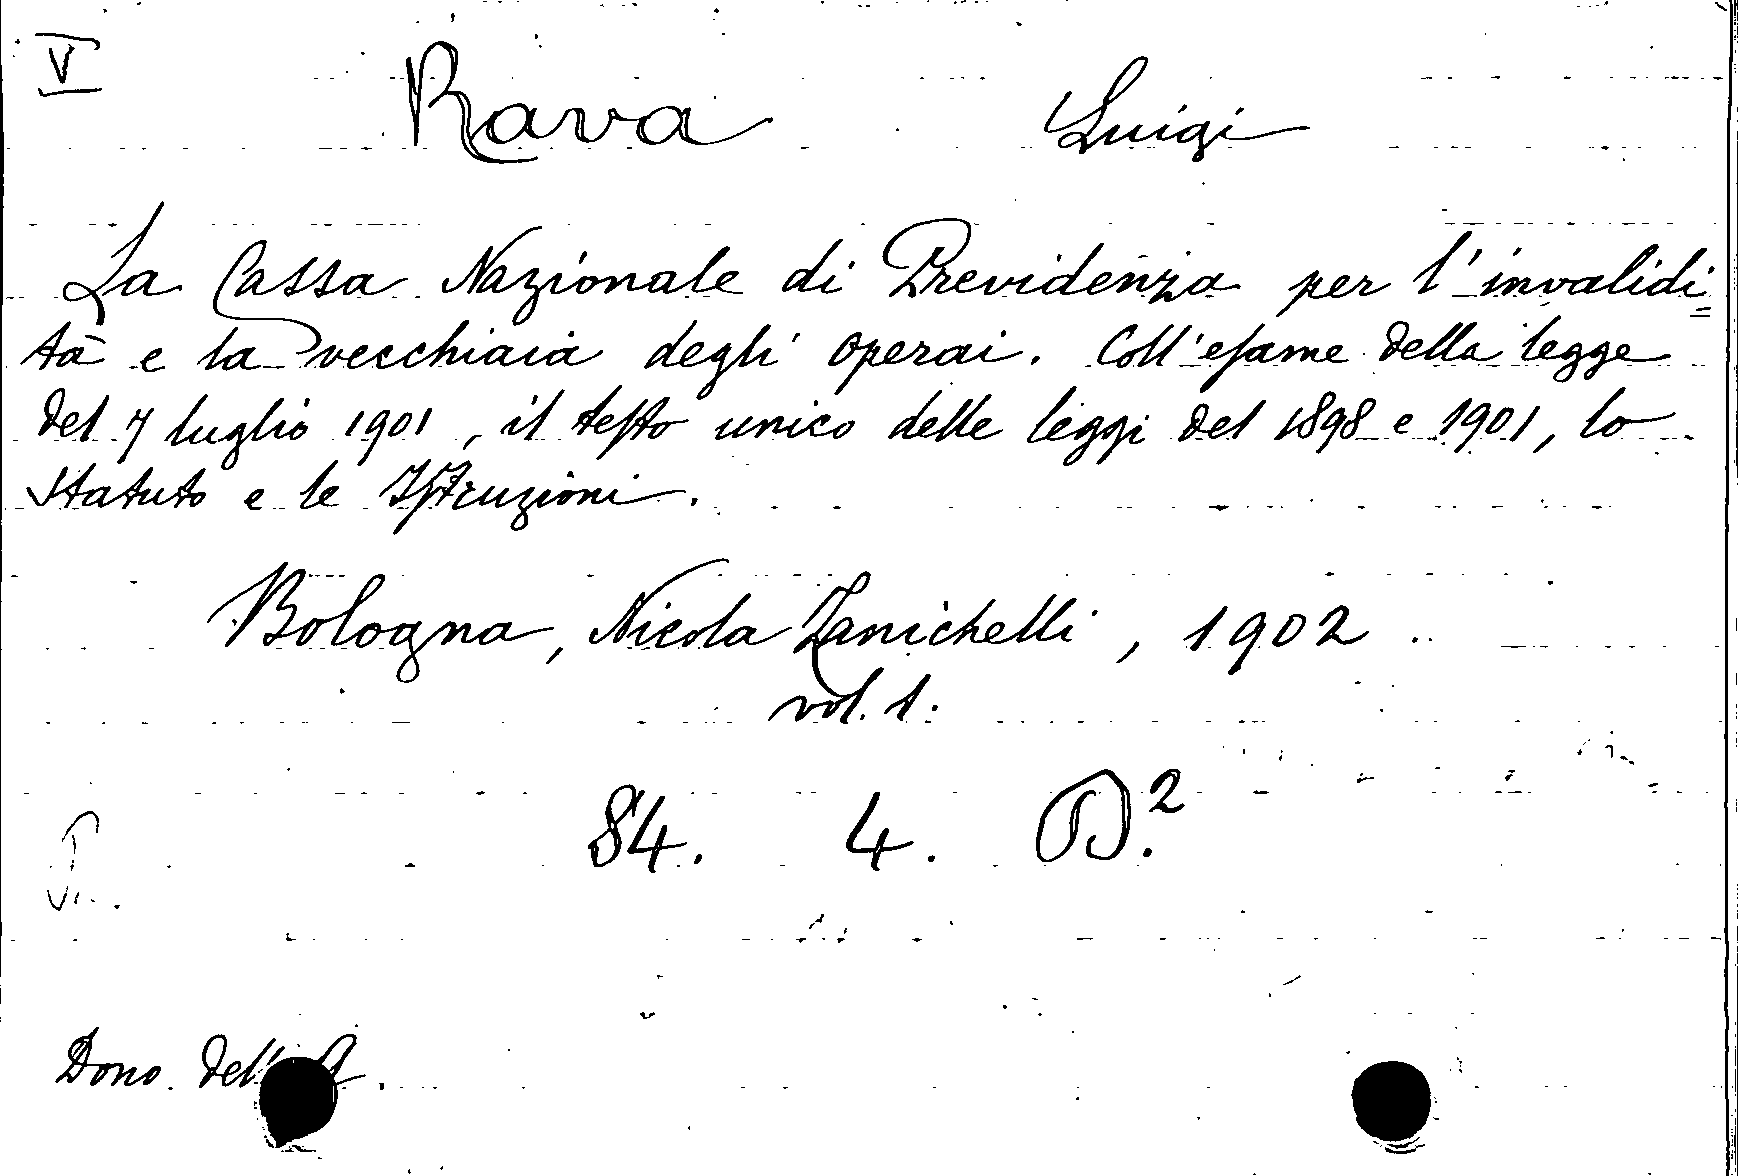 V
Rava Luigi
La Cassa Nazionale di Previdenza per l'invalidi=
tà e la vecchiaia degli operai. Coll'esame della legge
del 7 luglio 1901, il testo unico delle leggi del 1898 e 1901, lo
Statuto e le Istruzioni.
Bologna, Nicola Zanichelli, 1902
vol. 1.
84. 4. D.²
Dono dell'A.